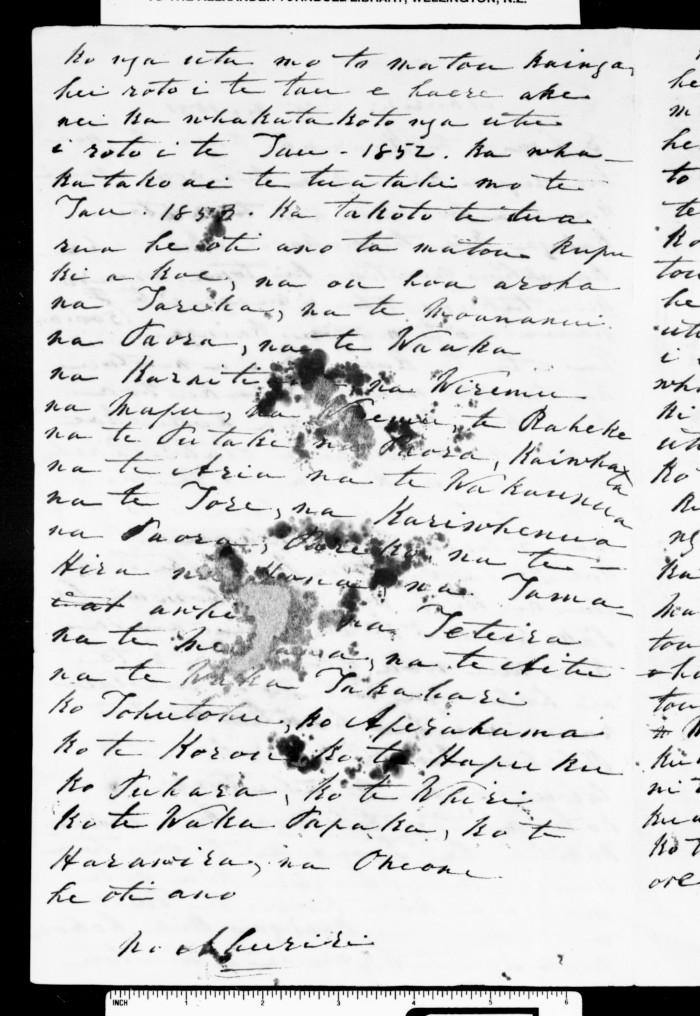 TO THE ALEXANDER TURNBULL LIBRARY, WELLINGTON, N.Z.
ko nga utu mo to matou kainga,
hei roto i te tau e haere ake
nei ka whakatakoto nga utu
i roto i te Tau - 1852. ka wha-
katakoaei te tuatahi mo te
Tau. 1853. Ka takoto te tua
rua he oti ano ta matou kupu
ki a koe, na ou hoa aroha
na Tareha, na te Moananui
na Paora, na te Waaka
na Karaiti na Wiremu
na Mapu, na te Raheke
na te Putake na Paora, Kaiwhata
na te Aria na te Wakaunua
na te Tore, na Karisohenua
na Paora, na te -
Hira na Hona, na Tama-
na Teteira
na te na te Aitu
na te Waka Takahari
ko Tohutohu, ko Aperahama
ko te Korou ko te Hapuku
ko Puhara, ko te Whiri
ko te Waka Papaka, ko te
Harawira, na Oneone
he oti ano
ko Ahuriri
INCH 1 2 3 4 5 6
he
m
he
to
te
ko
tou
he
utu
i
ki
ko
ng
ka
tou
tou
ko t